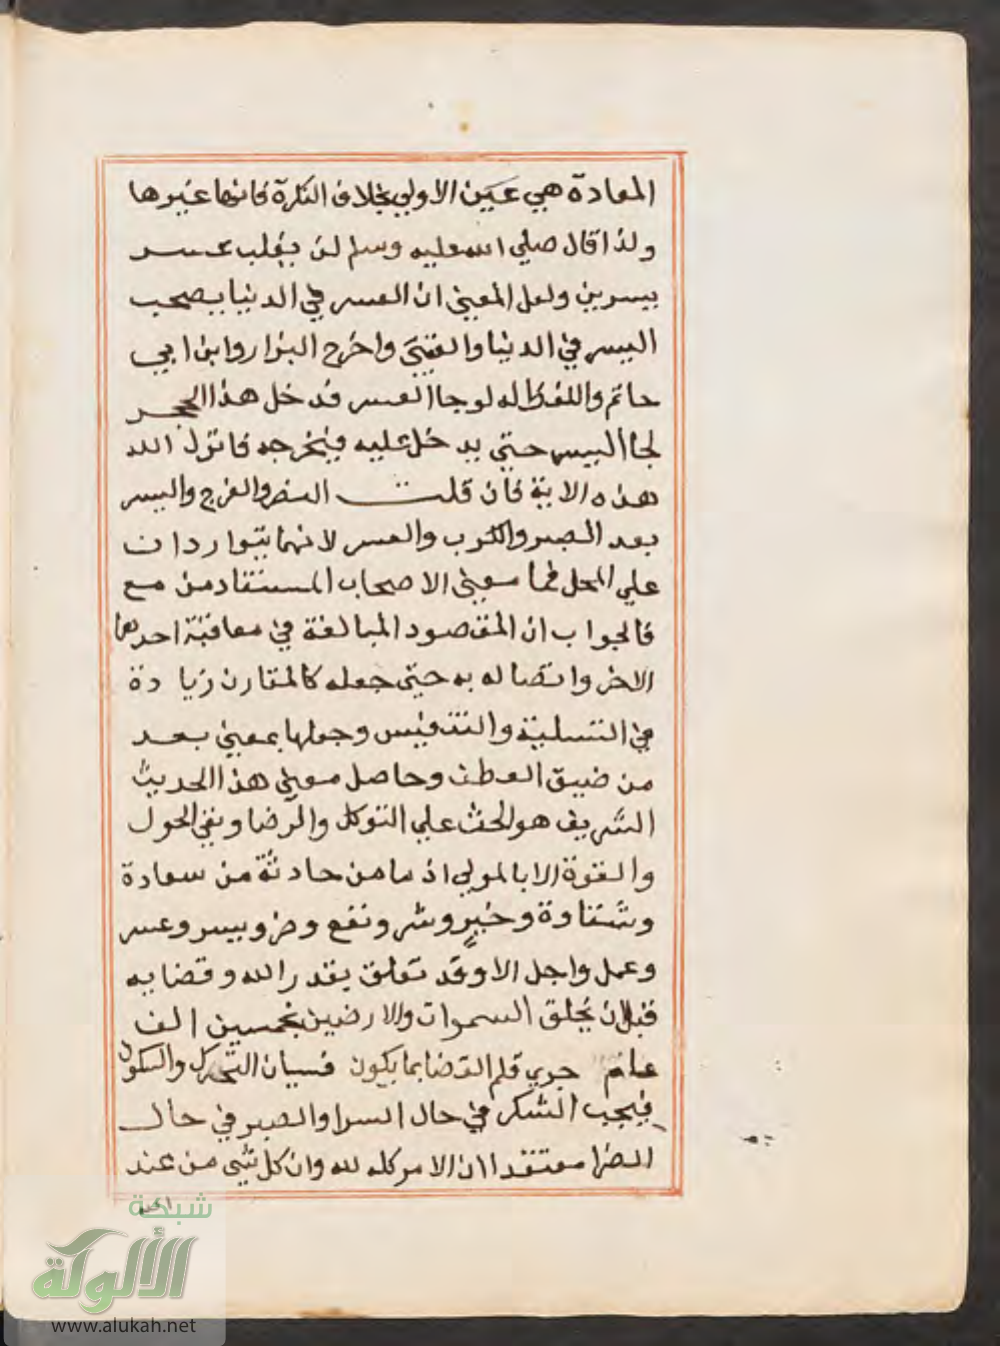 المعادة هي عين الاولي بخلاف النكرة فانها غيرها
ولذا قال صلي الله عليه وسلم لن يغلب عسر
بيسرين ولعل المعني ان العسر في الدنيا يصحب
اليسر في الدنيا والعقبي واخرج البزار وابن ابي
حاتم واللفظ له لو جاا لعسر فدخل هذا الحجر
لجاأ اليسر حتي يدخل عليه فيخرجه فانزل الله
هذه الاية فان قلت النصر والفرج واليسر
بعد الصبر والكرب والعسر لانهما يتواردان
علي المحل فما معني الاصحاب المستفاد من مع
فالجواب ان المقصود المبالغة في معاقبة احدهما
الاخر واتصاله به حتي جعله كالمقارن زيادة
في التسلية والتنفيس وجعلها بمعني بعد
من ضيق العطن وحاصل معني هذا الحديث
الشريف هو الحث علي التوكل والرضا ونفي الحول
والقوة الا بالمولي اذ ما من حادثة من سعادة
وشقاوة وخير وشر ونفع وضر ويسر وعسر
وعمل واجل الا وقد تعلق بقدر الله وقضايه
قبل ان يخلق السموات والارضين بخمسين الف
عام جري قلم القضا بما يكون فسيان التحرك والسكون
فيجب الشكر في حال السرا والصبر في حال
الضرا معتقدا ان الامر كله لله وان كل شي من عند
شبكة
الألوكة
www.alukah.net